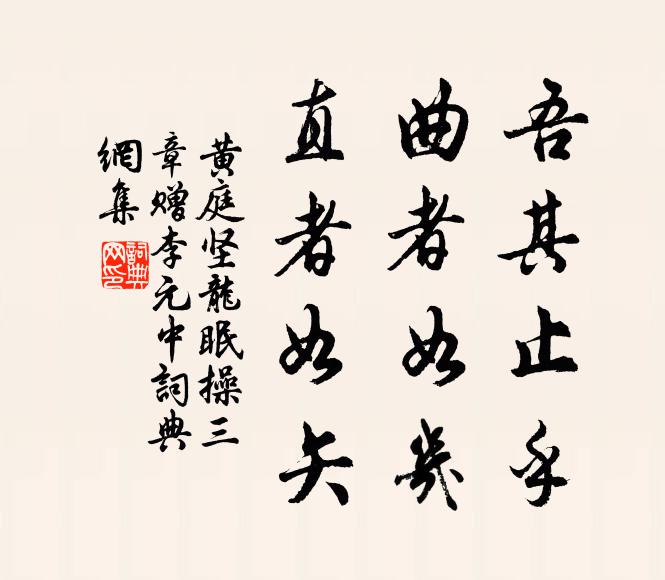 吾其止乎
曲者如几
直者如矢
黄庭坚龍眠操三
章赠李元中詞典
網集
詞典
网印